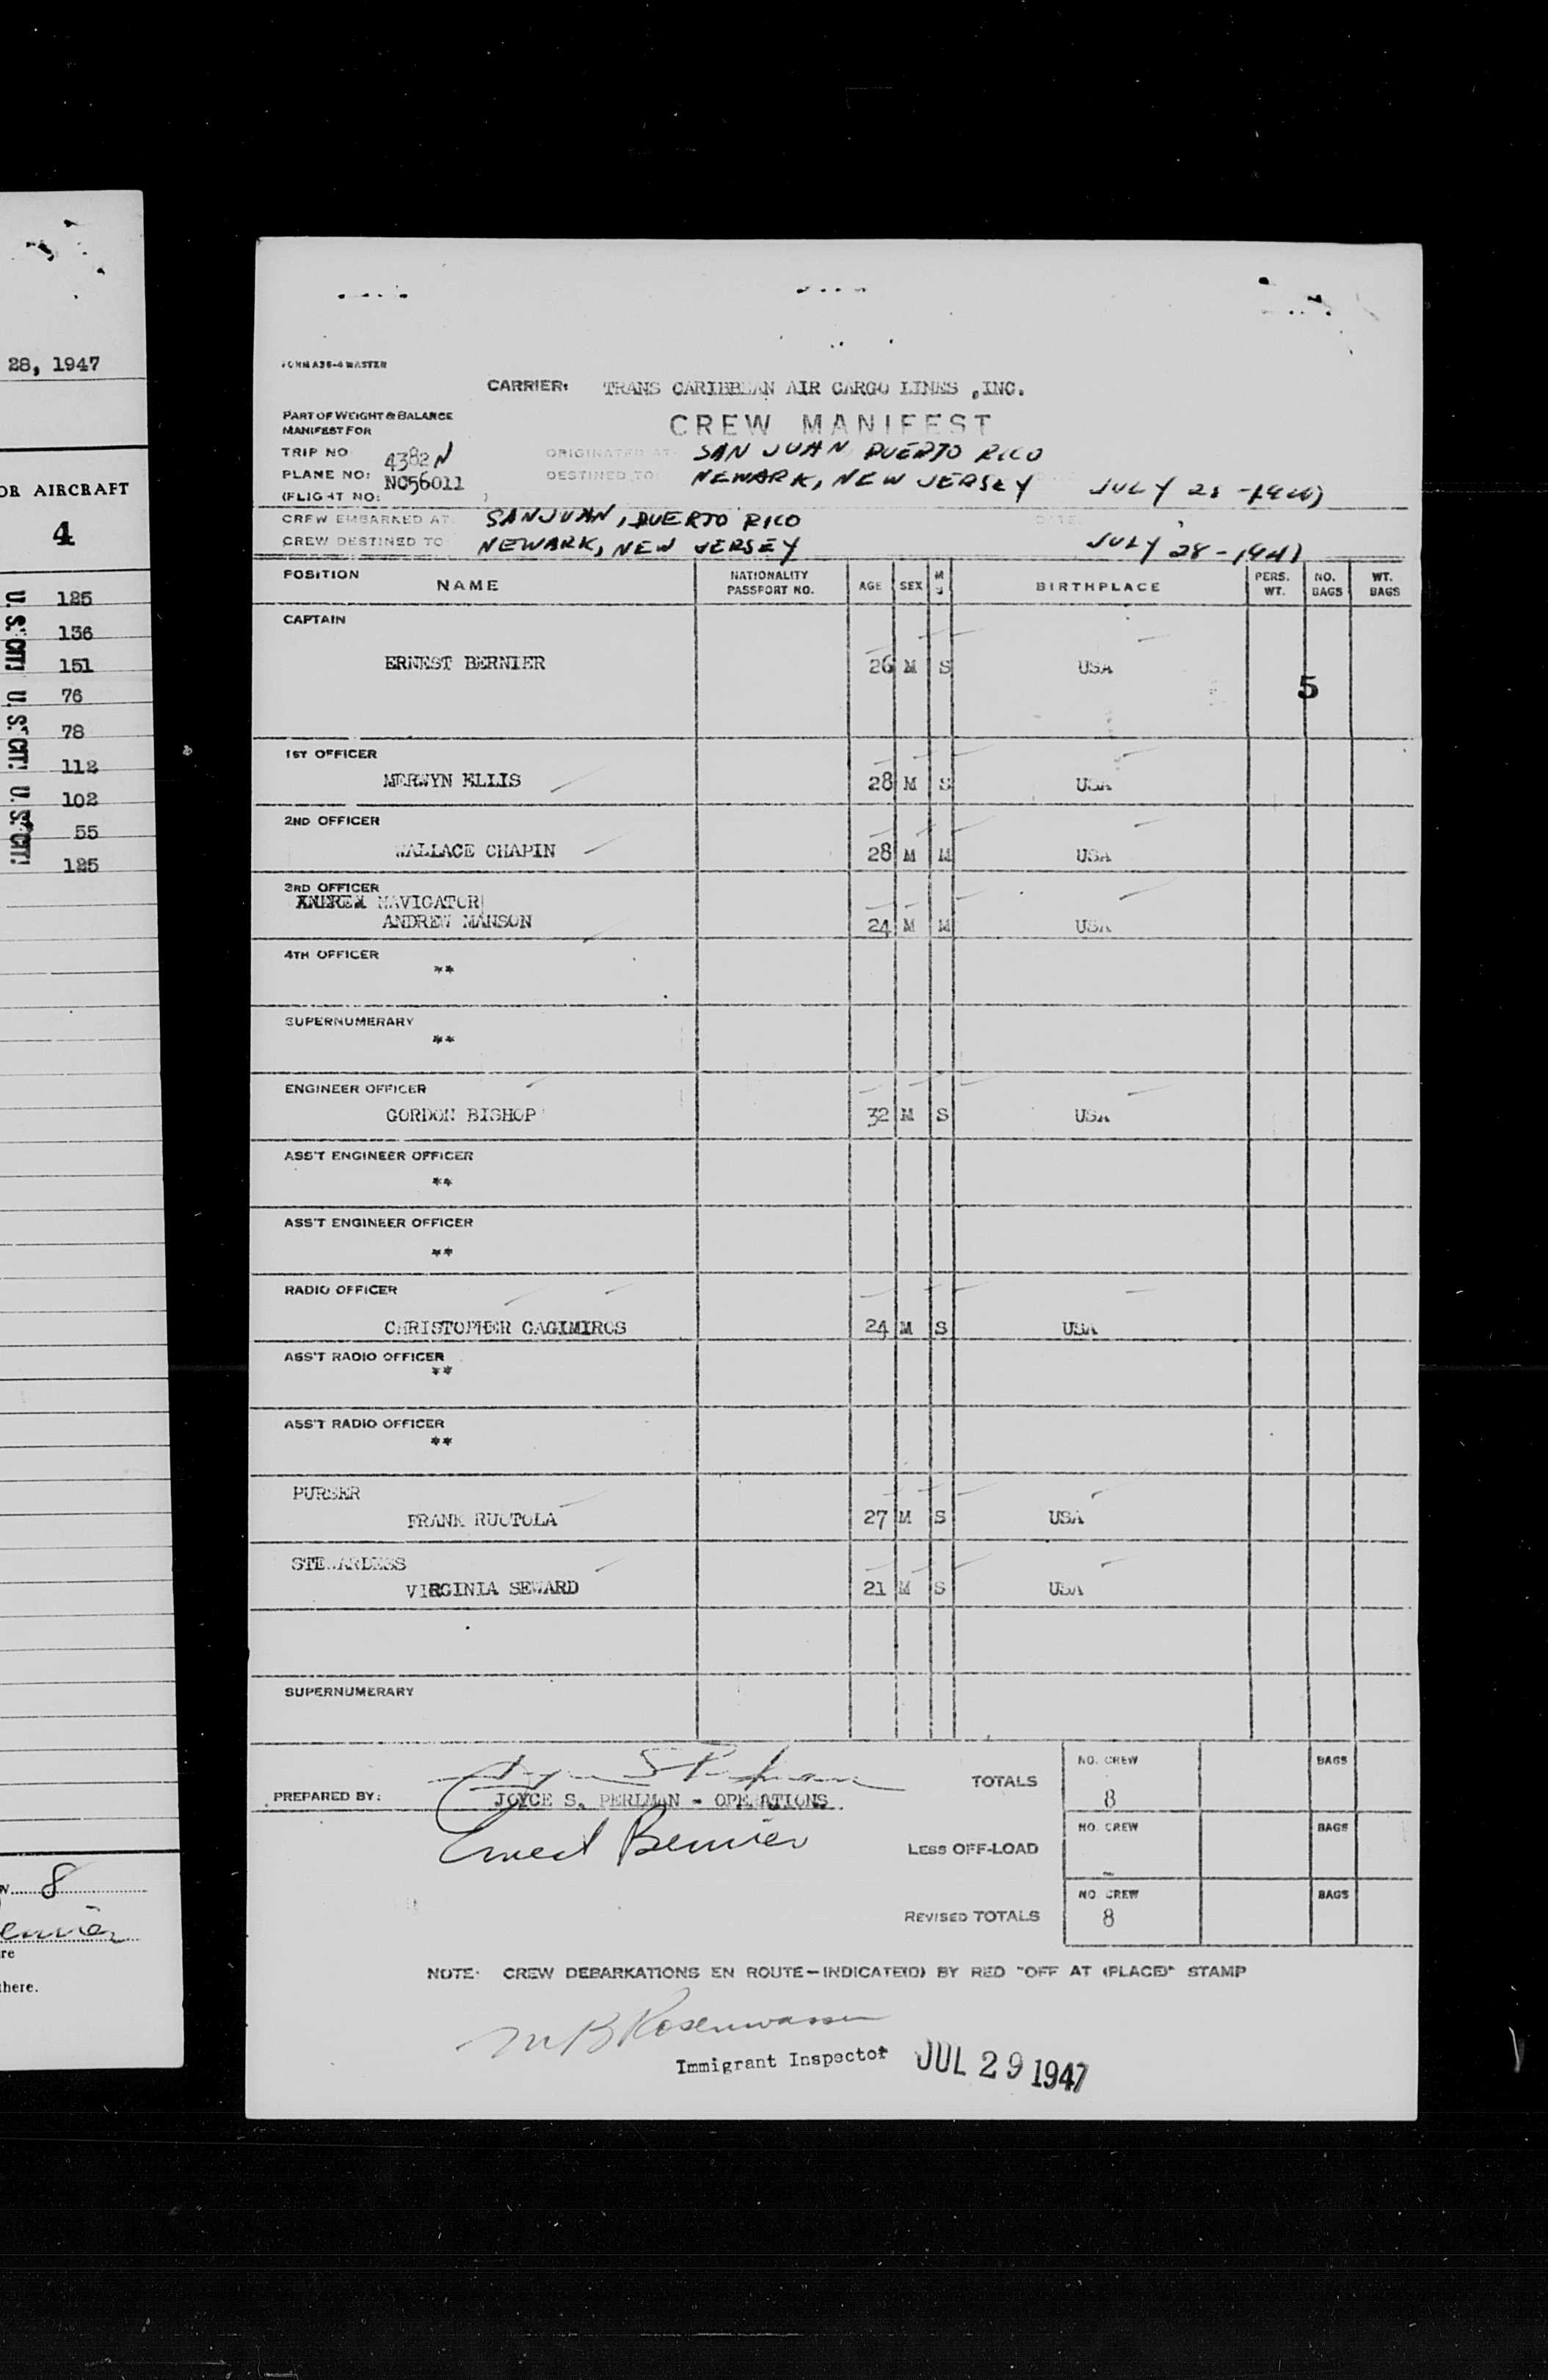 28, 1947
OR AIRCRAFT
4
U. S. CIT. U. S. CIT. U. S. CIT.
125
136
151
76
78
112
102
55
125
8
re
there.
FORM A36-4 MASTER
CARRIER: TRANS CARIBBEAN AIR CARGO LINES ,INC.
PART OF WEIGHT & BALANCE
MANIFEST FOR
CREW MANIFEST
TRIP NO 4382N ORIGINATED AT: SAN JUAN PUERTO RICO
PLANE NO: NC56011 DESTINED TO: NEWARK, NEW JERSEY JULY 28 -1947
(FLIGHT NO: )
CREW EMBARKED AT: SAN JUAN, PUERTO RICO DATE:
CREW DESTINED TO: NEWARK, NEW JERSEY JULY 28 - 1947
POSITION NAME NATIONALITY PASSPORT NO. AGE SEX M S BIRTHPLACE PERS. WT. NO. BAGS WT. BAGS
CAPTAIN
ERNEST BERNIER 26 M S USA
5
1ST OFFICER
MERWYN ELLIS 28 M S USA
2ND OFFICER
WALLACE CHAPIN 28 M M USA
3RD OFFICER
NAVIGATOR
ANDREW MANSON 24 M M USA
4TH OFFICER
**
SUPERNUMERARY
**
ENGINEER OFFICER
GORDON BISHOP 32 M S USA
ASS'T ENGINEER OFFICER
**
ASS'T ENGINEER OFFICER
**
RADIO OFFICER
CHRISTOPHER GAGIMIROS 24 M S USA
ASS'T RADIO OFFICER
**
ASS'T RADIO OFFICER
**
PURSER
FRANK RUOTOLA 27 M S USA
STEWARDESS
VIRGINIA SEWARD 21 M S USA
SUPERNUMERARY
Joyce S Perlman
PREPARED BY: JOYCE S. PERLMAN - OPERATIONS
TOTALS NO. CREW 8 BAGS
Ernest Bernier
LESS OFF-LOAD NO. CREW - BAGS
REVISED TOTALS NO. CREW 8 BAGS
NOTE: CREW DEBARKATIONS EN ROUTE-INDICATE(D) BY RED "OFF AT (PLACE)" STAMP
M B Rosenwasser
Immigrant Inspector JUL 29 1947